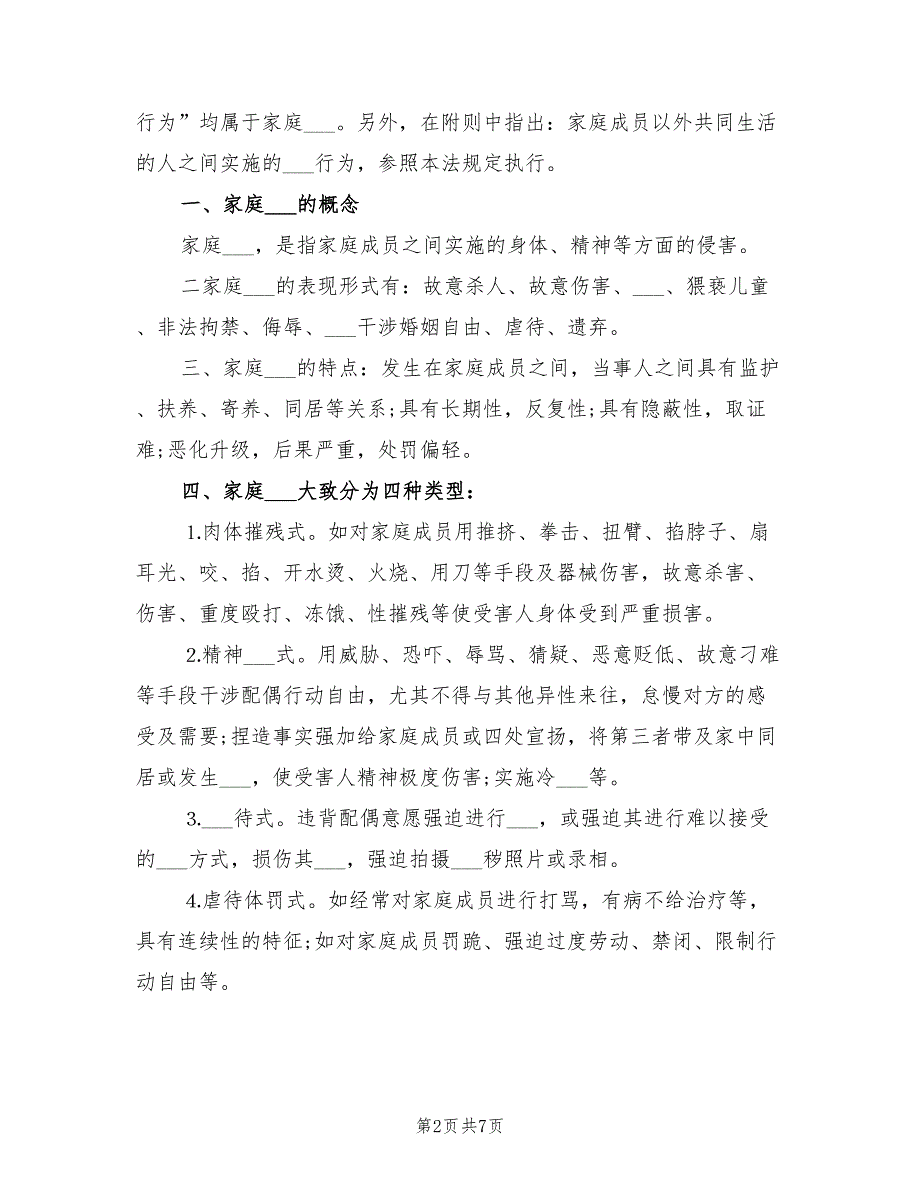 行为”均属于家庭___。另外，在附则中指出：家庭成员以外共同生活
的人之间实施的___行为，参照本法规定执行。
一、家庭___的概念
家庭___，是指家庭成员之间实施的身体、精神等方面的侵害。
二家庭___的表现形式有：故意杀人、故意伤害、___、猥亵儿童
、非法拘禁、侮辱、___干涉婚姻自由、虐待、遗弃。
三、家庭___的特点：发生在家庭成员之间，当事人之间具有监护
、扶养、寄养、同居等关系;具有长期性，反复性;具有隐蔽性，取证
难;恶化升级，后果严重，处罚偏轻。
四、家庭___大致分为四种类型：
1.肉体摧残式。如对家庭成员用推挤、拳击、扭臂、掐脖子、扇
耳光、咬、掐、开水烫、火烧、用刀等手段及器械伤害，故意杀害、
伤害、重度殴打、冻饿、性摧残等使受害人身体受到严重损害。
2.精神___式。用威胁、恐吓、辱骂、猜疑、恶意贬低、故意刁难
等手段干涉配偶行动自由，尤其不得与其他异性来往，怠慢对方的感
受及需要;捏造事实强加给家庭成员或四处宣扬，将第三者带及家中同
居或发生___，使受害人精神极度伤害;实施冷___等。
3.___待式。违背配偶意愿强迫进行___，或强迫其进行难以接受
的___方式，损伤其___，强迫拍摄___秽照片或录相。
4.虐待体罚式。如经常对家庭成员进行打骂，有病不给治疗等，
具有连续性的特征;如对家庭成员罚跪、强迫过度劳动、禁闭、限制行
动自由等。
第2页共7页